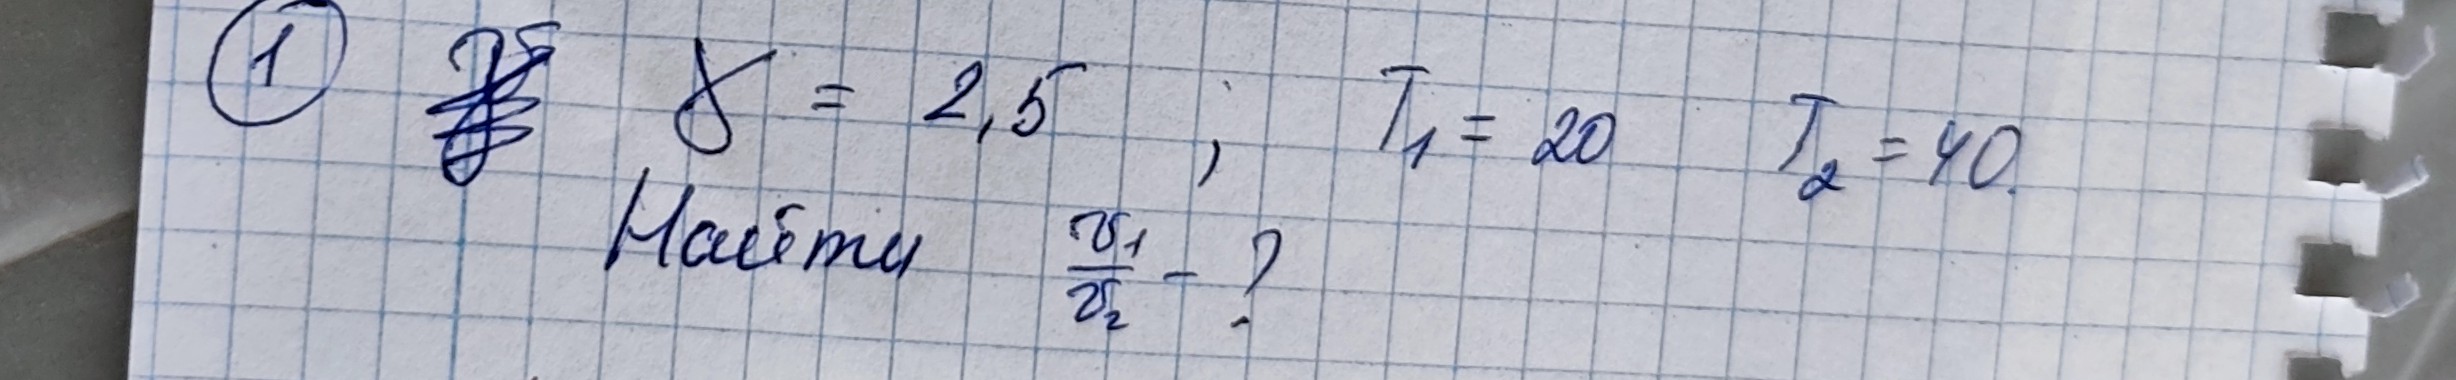 ① γ = 2,5 , T₁ = 20 T₂ = 40.
Найти v₁/v₂ - ?